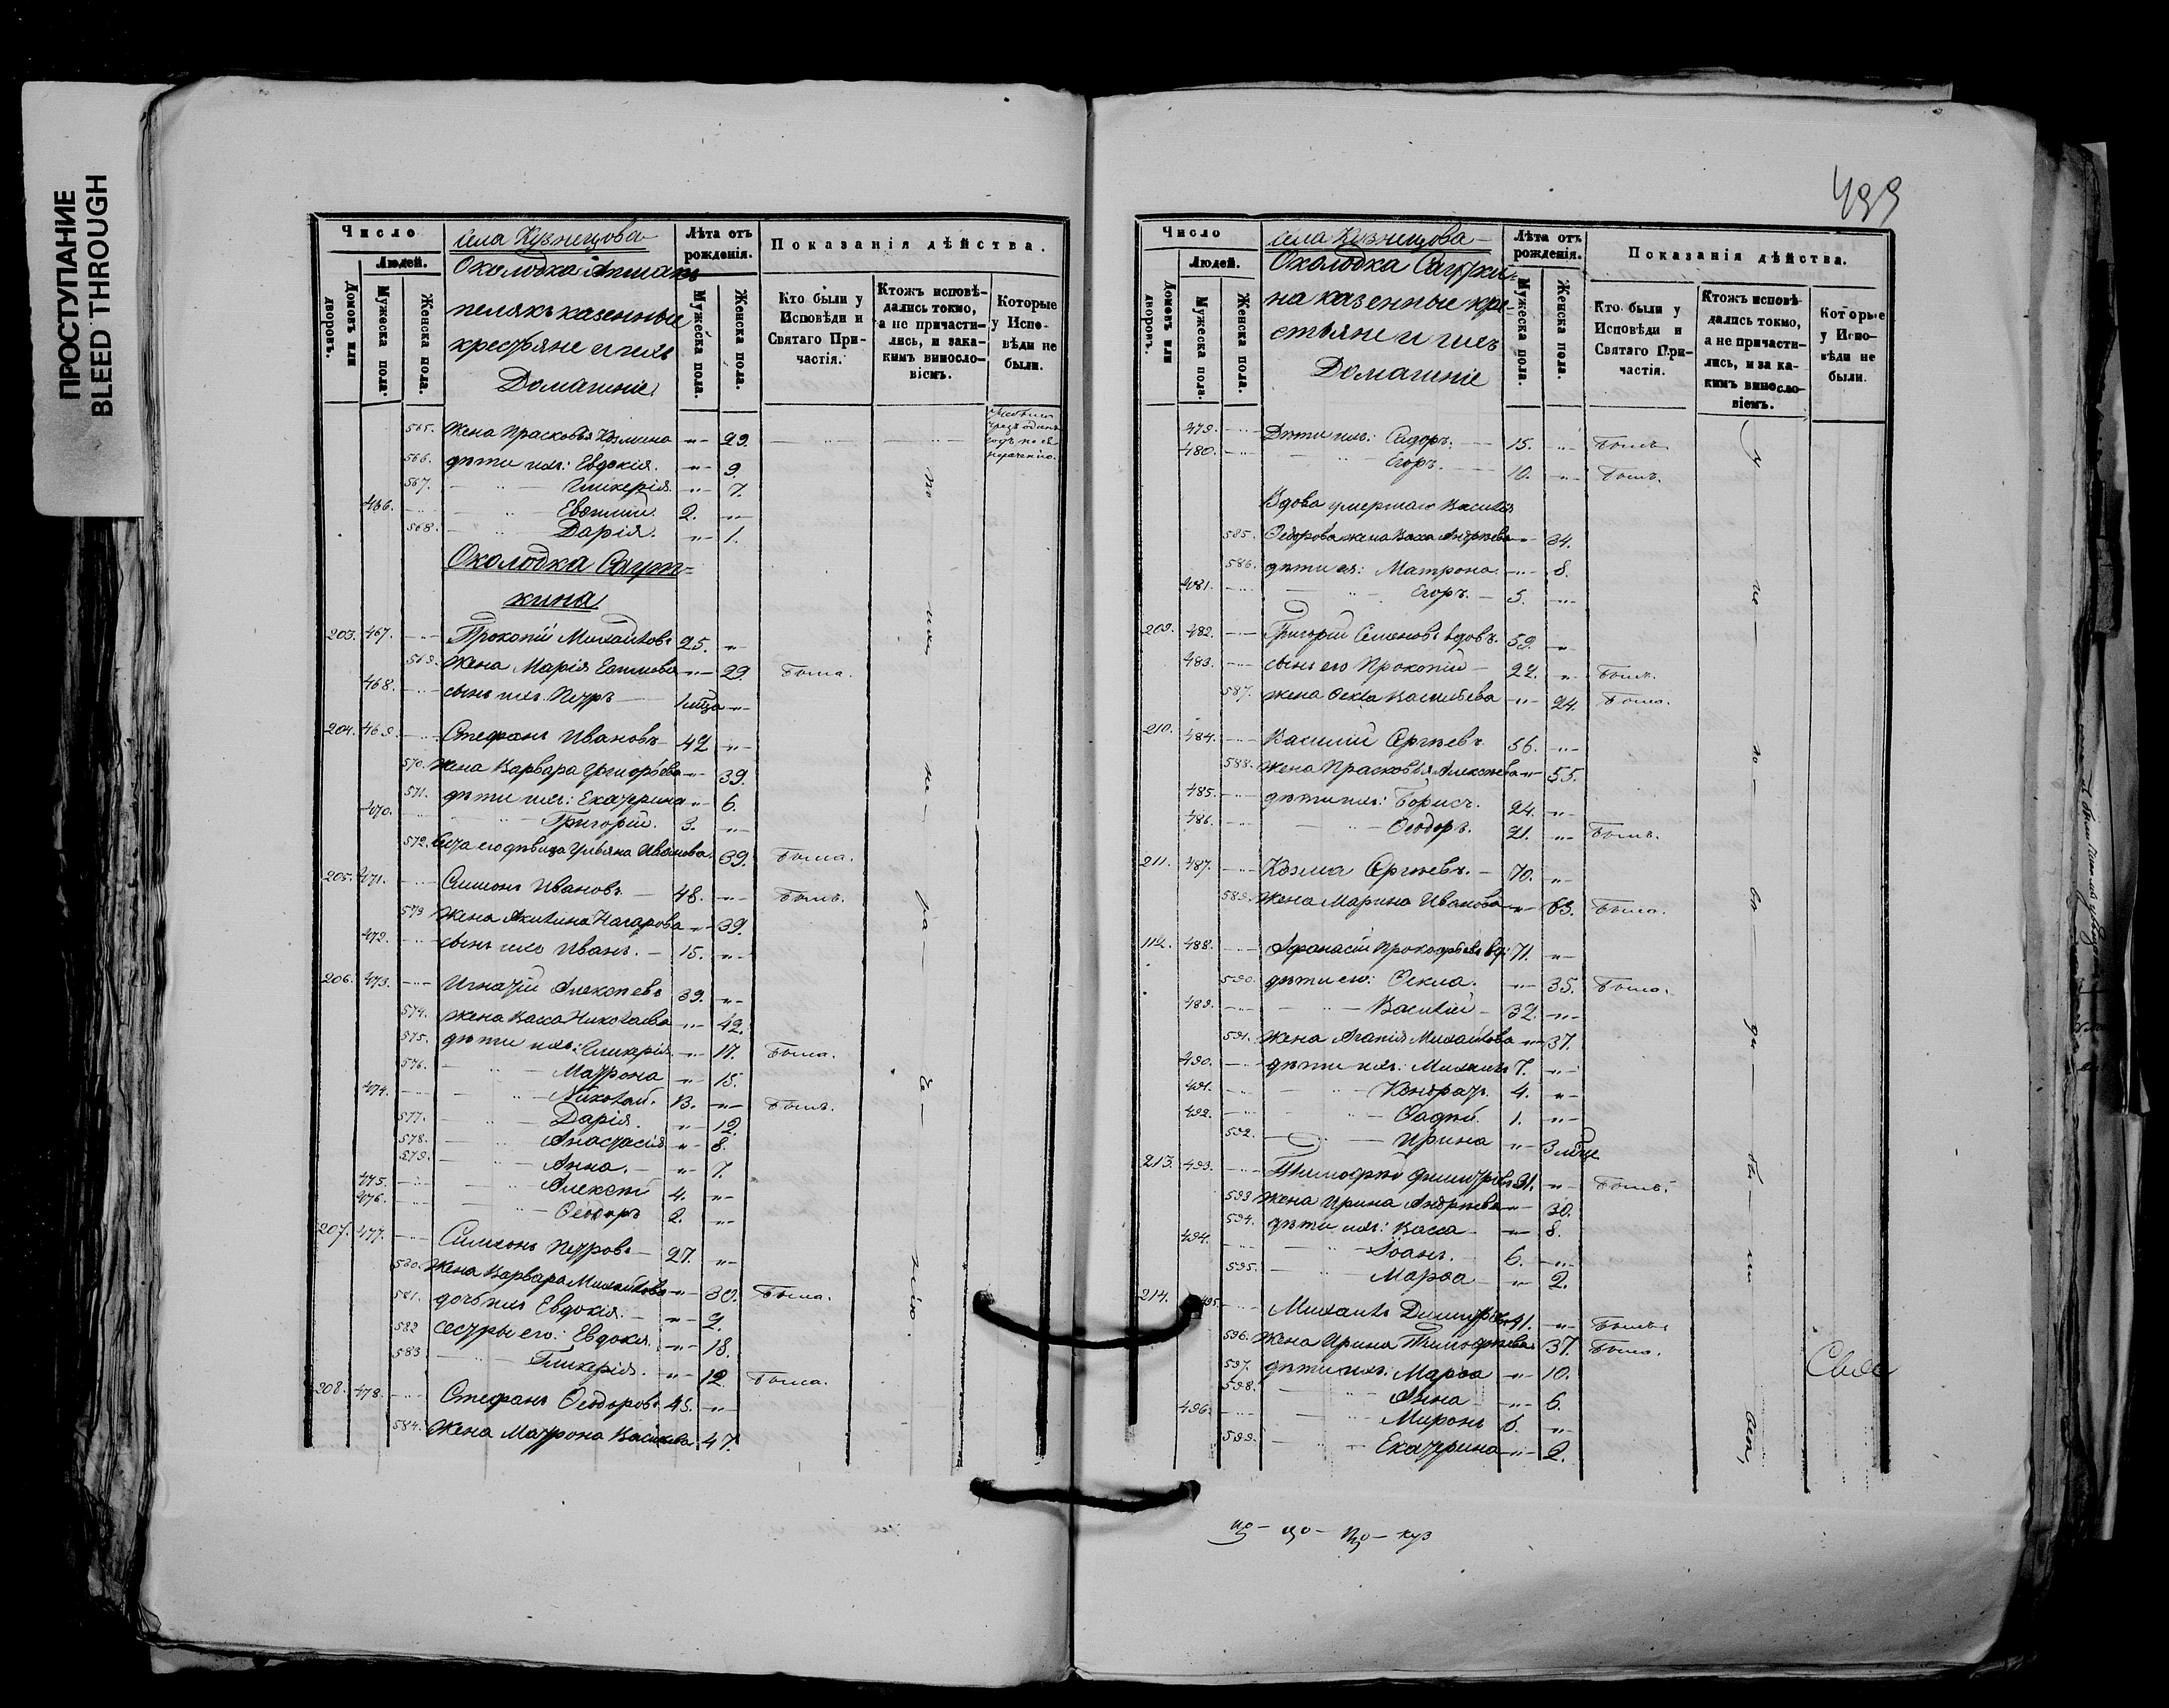 ПРОСТУПАНИЕ
BLEED THROUGH
Число
Людей.
Домовъ или дворовъ.
Мужеска пола.
Женска пола.
Села Кузнецова
Околодка
казенные
крестьяне и ихъ
Домашніе
Лѣта отъ рожденія.
Мужеска пола.
Женска пола.
Показанія дѣйства.
Кто были у Исповѣди и Святаго Причастія.
Ктожъ исповѣдались токмо, а не причастились, и за какимъ винословіемъ.
Которые у Исповѣди не были.
565. Жена Прасковья Козмина -"- 29.
566. дѣти ихъ: Евдокія. -"- 9.
567. -"- Гликерія. -"- 7.
466. -"- 2. -"-
568. -"- Дарія. -"- 1.
Околодка Саут=
кина
203. 467. Прокопій Михайловъ 25. -"-
569. Жена Марія -"- 29. Была.
468. сынъ ихъ Петръ -"-
204. 469. Стефанъ Ивановъ 42 -"-
570. Жена Варвара Григорьева -"- 39.
571. дѣти ихъ: Екатерина -"- 6.
470. -"- Григорій. 3. -"-
572. его дѣвица Ульяна Иванова. 39. Была.
205. 471. Симеонъ Ивановъ 48. -"- Былъ.
573 Жена Акилина Назарова -"- 39.
472. сынъ ихъ Иванъ. 15. -"-
206. 473. Игнатій Алексѣевъ 39. -"-
574. Жена Васса Николаева -"- 42.
575. дѣти ихъ: Гликерія -"- 17. Была.
576. -"- Матрона -"- 15.
474. -"- Николай. 13. -"- Былъ.
577. -"- Дарія. -"- 12.
578. -"- Анастасія -"- 8.
579. -"- Анна. -"- 7.
475. -"- Алексѣй 4. -"-
476. -"- Ѳеодоръ 2. -"-
207. 477. Симеонъ Петровъ 27. -"-
580. Жена Варвара Михайлова -"- 30. Была.
581. дочь ихъ Евдокія. -"- 2.
582 сестры его: Евдокія. -"- 18.
583 -"- Гликерія. -"- 12. Была.
208. 478. Стефанъ Ѳеодоровъ 45. -"-
584. Жена Матрона Васильева 47.
499
Число
Людей.
Домовъ или дворовъ.
Мужеска пола.
Женска пола.
Села Кузнецова
Околодка Саутки=
на казенные кре=
стьяне и ихъ
Домашніе
Лѣта отъ рожденія.
Мужеска пола.
Женска пола.
Показанія дѣйства.
Кто были у Исповѣди и Святаго Причастія.
Ктожъ исповѣдались токмо, а не причастились, и за какимъ винословіемъ.
Которые у Исповѣди не были.
479. Дѣти ихъ: Сидоръ. 15. -"- Былъ.
480. -"- Егоръ. 10. -"- Былъ.
Вдова умершаго Василія
585. Ѳедорова жена Васса Андреева 34.
586. дѣти ея: Матрона -"- 8.
481. -"- Егоръ. 5. -"-
209. 482. Григорій Семеновъ вдовъ. 59. -"-
483. сынъ его Прокопій 22. -"- Былъ.
587. жена Ѳекла Васильева -"- 24. Была.
210. 484. Василій Сергѣевъ 56. -"-
588. Жена Прасковья Алексѣева -"- 55.
485. дѣти ихъ: Борисъ. 24. -"-
486. -"- Ѳеодоръ. 21. -"- Былъ.
211. 487. Козма Сергѣевъ. 70. -"-
589. Жена Марина Иванова -"- 63. Была.
112. 488. Афанасій Прокофьевъ вд: 71. -"-
590. дѣти его: Ѳекла. -"- 35. Была.
489. -"- Василій 32. -"-
591. Жена Агапія Михайлова -"- 37.
490. дѣти ихъ: Михаилъ 7. -"-
491. -"- Кондратъ. 4. -"-
492. -"- Ѳадѣй. 1. -"-
592. -"- Ирина -"-
213. 493. Тимофѣй Димитріевъ 31. -"- Былъ.
593 Жена Ирина Андреева -"- 30.
594. дѣти ихъ: Васса -"- 8.
494. -"- Іоанъ. 6. -"-
595. -"- Марѳа -"- 2.
214. 495. Михаилъ Димитріевъ 41. -"- Былъ.
596. Жена Ирина Тимофѣева 37. Была.
597. дѣти ихъ: Марѳа -"- 10.
598. -"- Анна -"- 6.
496. -"- Миронъ 6. -"-
599. -"- Екатерина -"- 2.